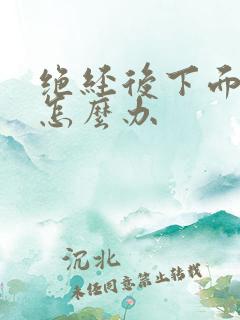 绝经后下面
怎麼办
沉北
未经同意禁止转载